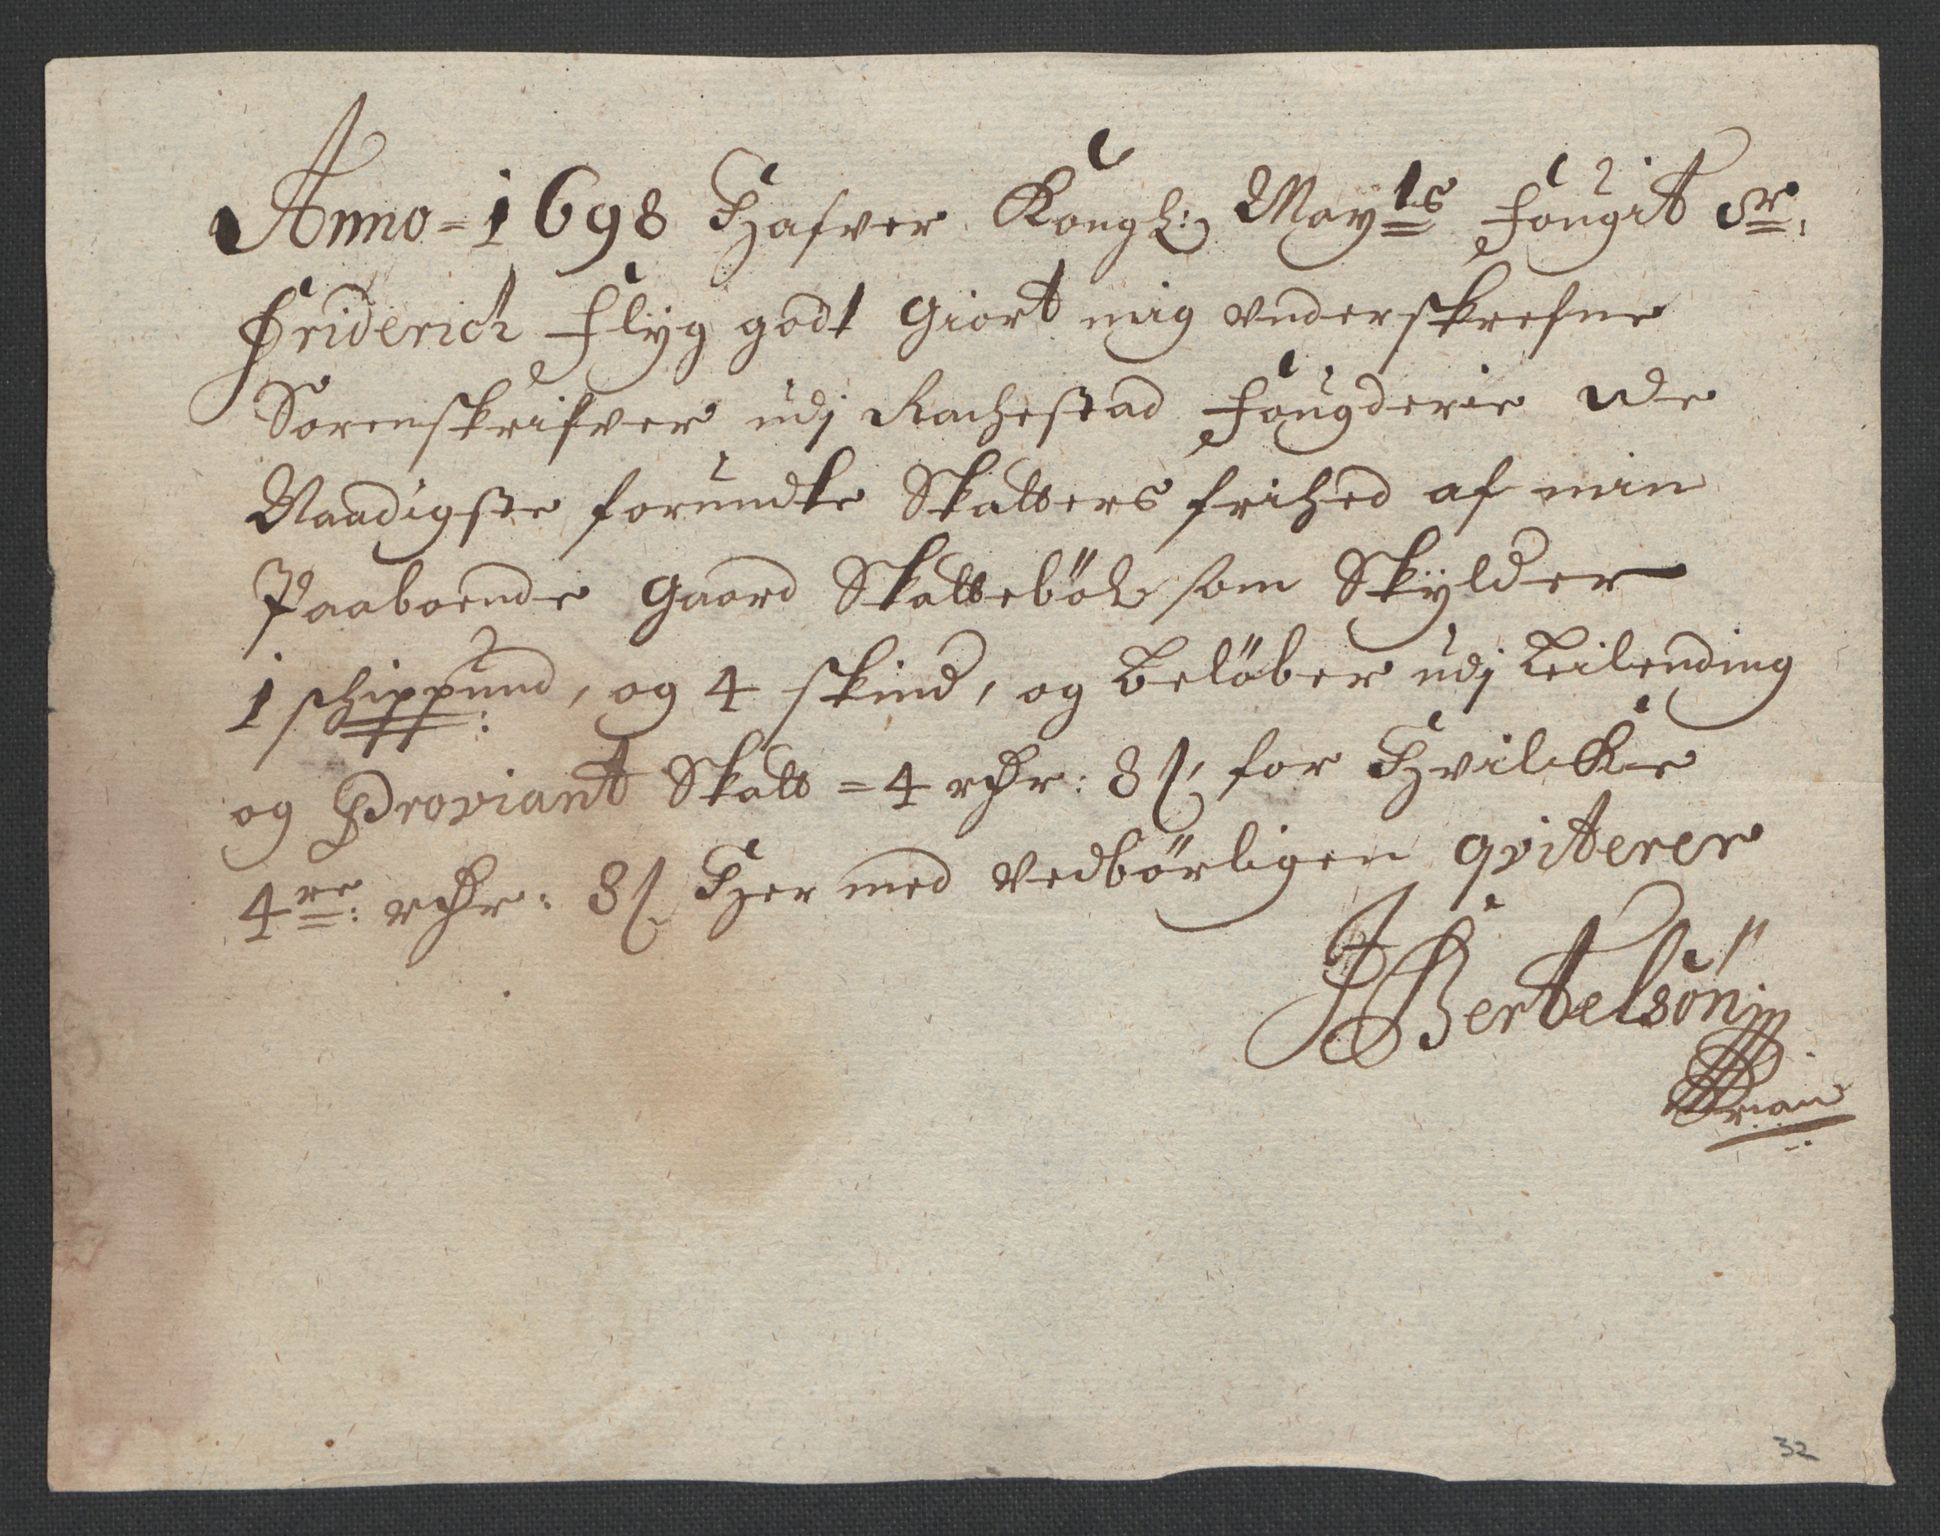 Anno = 1698 Hafver Kongl: Mayts Fougit Sr:
Friderich Flÿg godt Giort mig underskrefne
Sorenskrifver udj Rachestad Fougderie De
Naadigste forundte Skatters frihed af min
Paaboende Gaard Skatteböl som Skÿlder
1 schippund, og 4 skind, og Belöber udj Leilending
og Proviant Skatt = 4 rdr: 8 s, for Hvilcke
4re: rdr: 8 s Her med vedbörligen qviterer
J Bertelsön
32